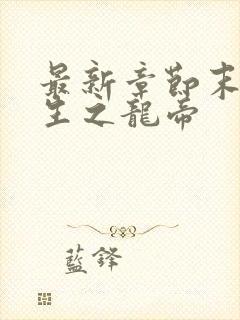 最新章節末
生之龍帝
藍鋒